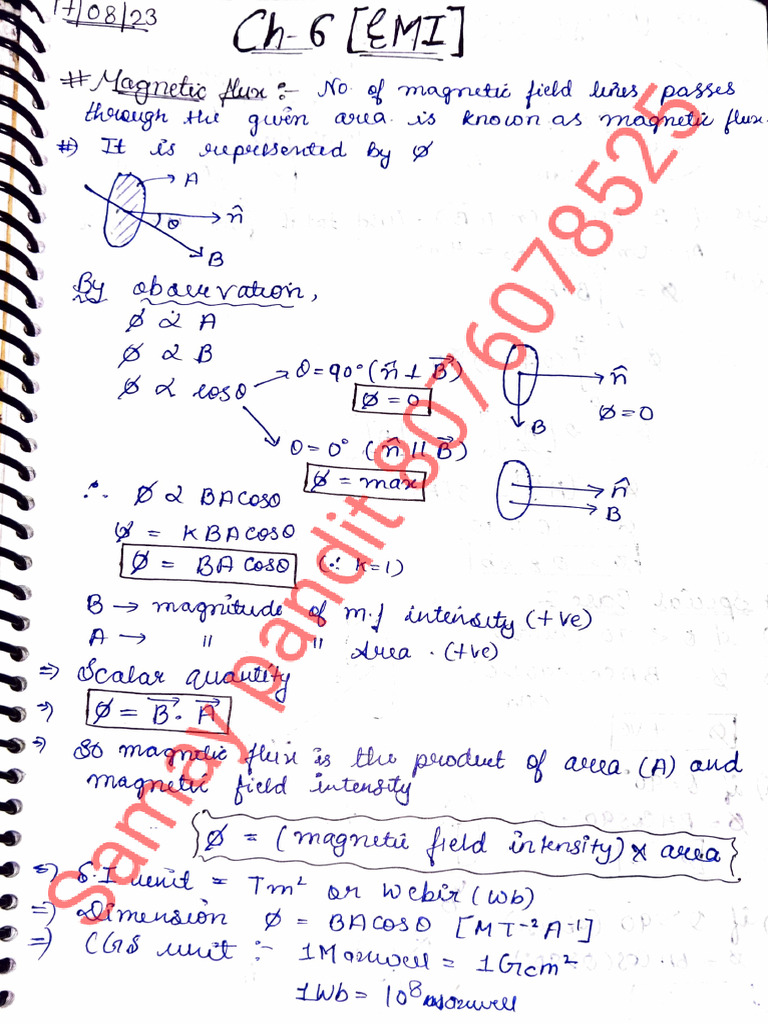 17/08/23
Ch-6 [EMI]
# Magnetic flux :- No. of magnetic field lines passes
through the given area is known as magnetic flux.
#) It is represented by φ
A
n̂
θ
B
By observation,
φ ∝ A
φ ∝ B
φ ∝ cosθ
θ=90° (n̂ ⊥ B⃗)
φ=0
n̂
B
φ=0
θ=0° (n̂ || B⃗)
φ = max
n̂
B
∴ φ ∝ BAcosθ
φ = KBAcosθ
φ = BAcosθ (∵ K=1)
B → magnitude of m.f intensity (+ve)
A → " " Area . (+ve)
⇒ Scalar quantity
⇒ φ = B⃗ · A⃗
⇒ So magnetic flux is the product of area (A) and
magnetic field intensity
φ = (magnetic field intensity) × area
⇒ S.I unit = Tm² or Webir (Wb)
⇒ Dimension φ = BAcosθ [MT⁻²A⁻¹]
⇒ CGS unit :- 1Maxwell = 1Gcm²
1Wb = 10⁸ maxwell
Samay pandit 8076078525